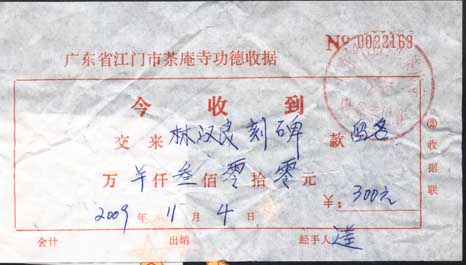 № 0022163
广东省江门市茶庵寺功德收据
今收到
交来林汉良刻碑款
万仟叁佰零拾零元
¥：300元
2009年11月4日
会计 出纳 经手人
(2)收据联